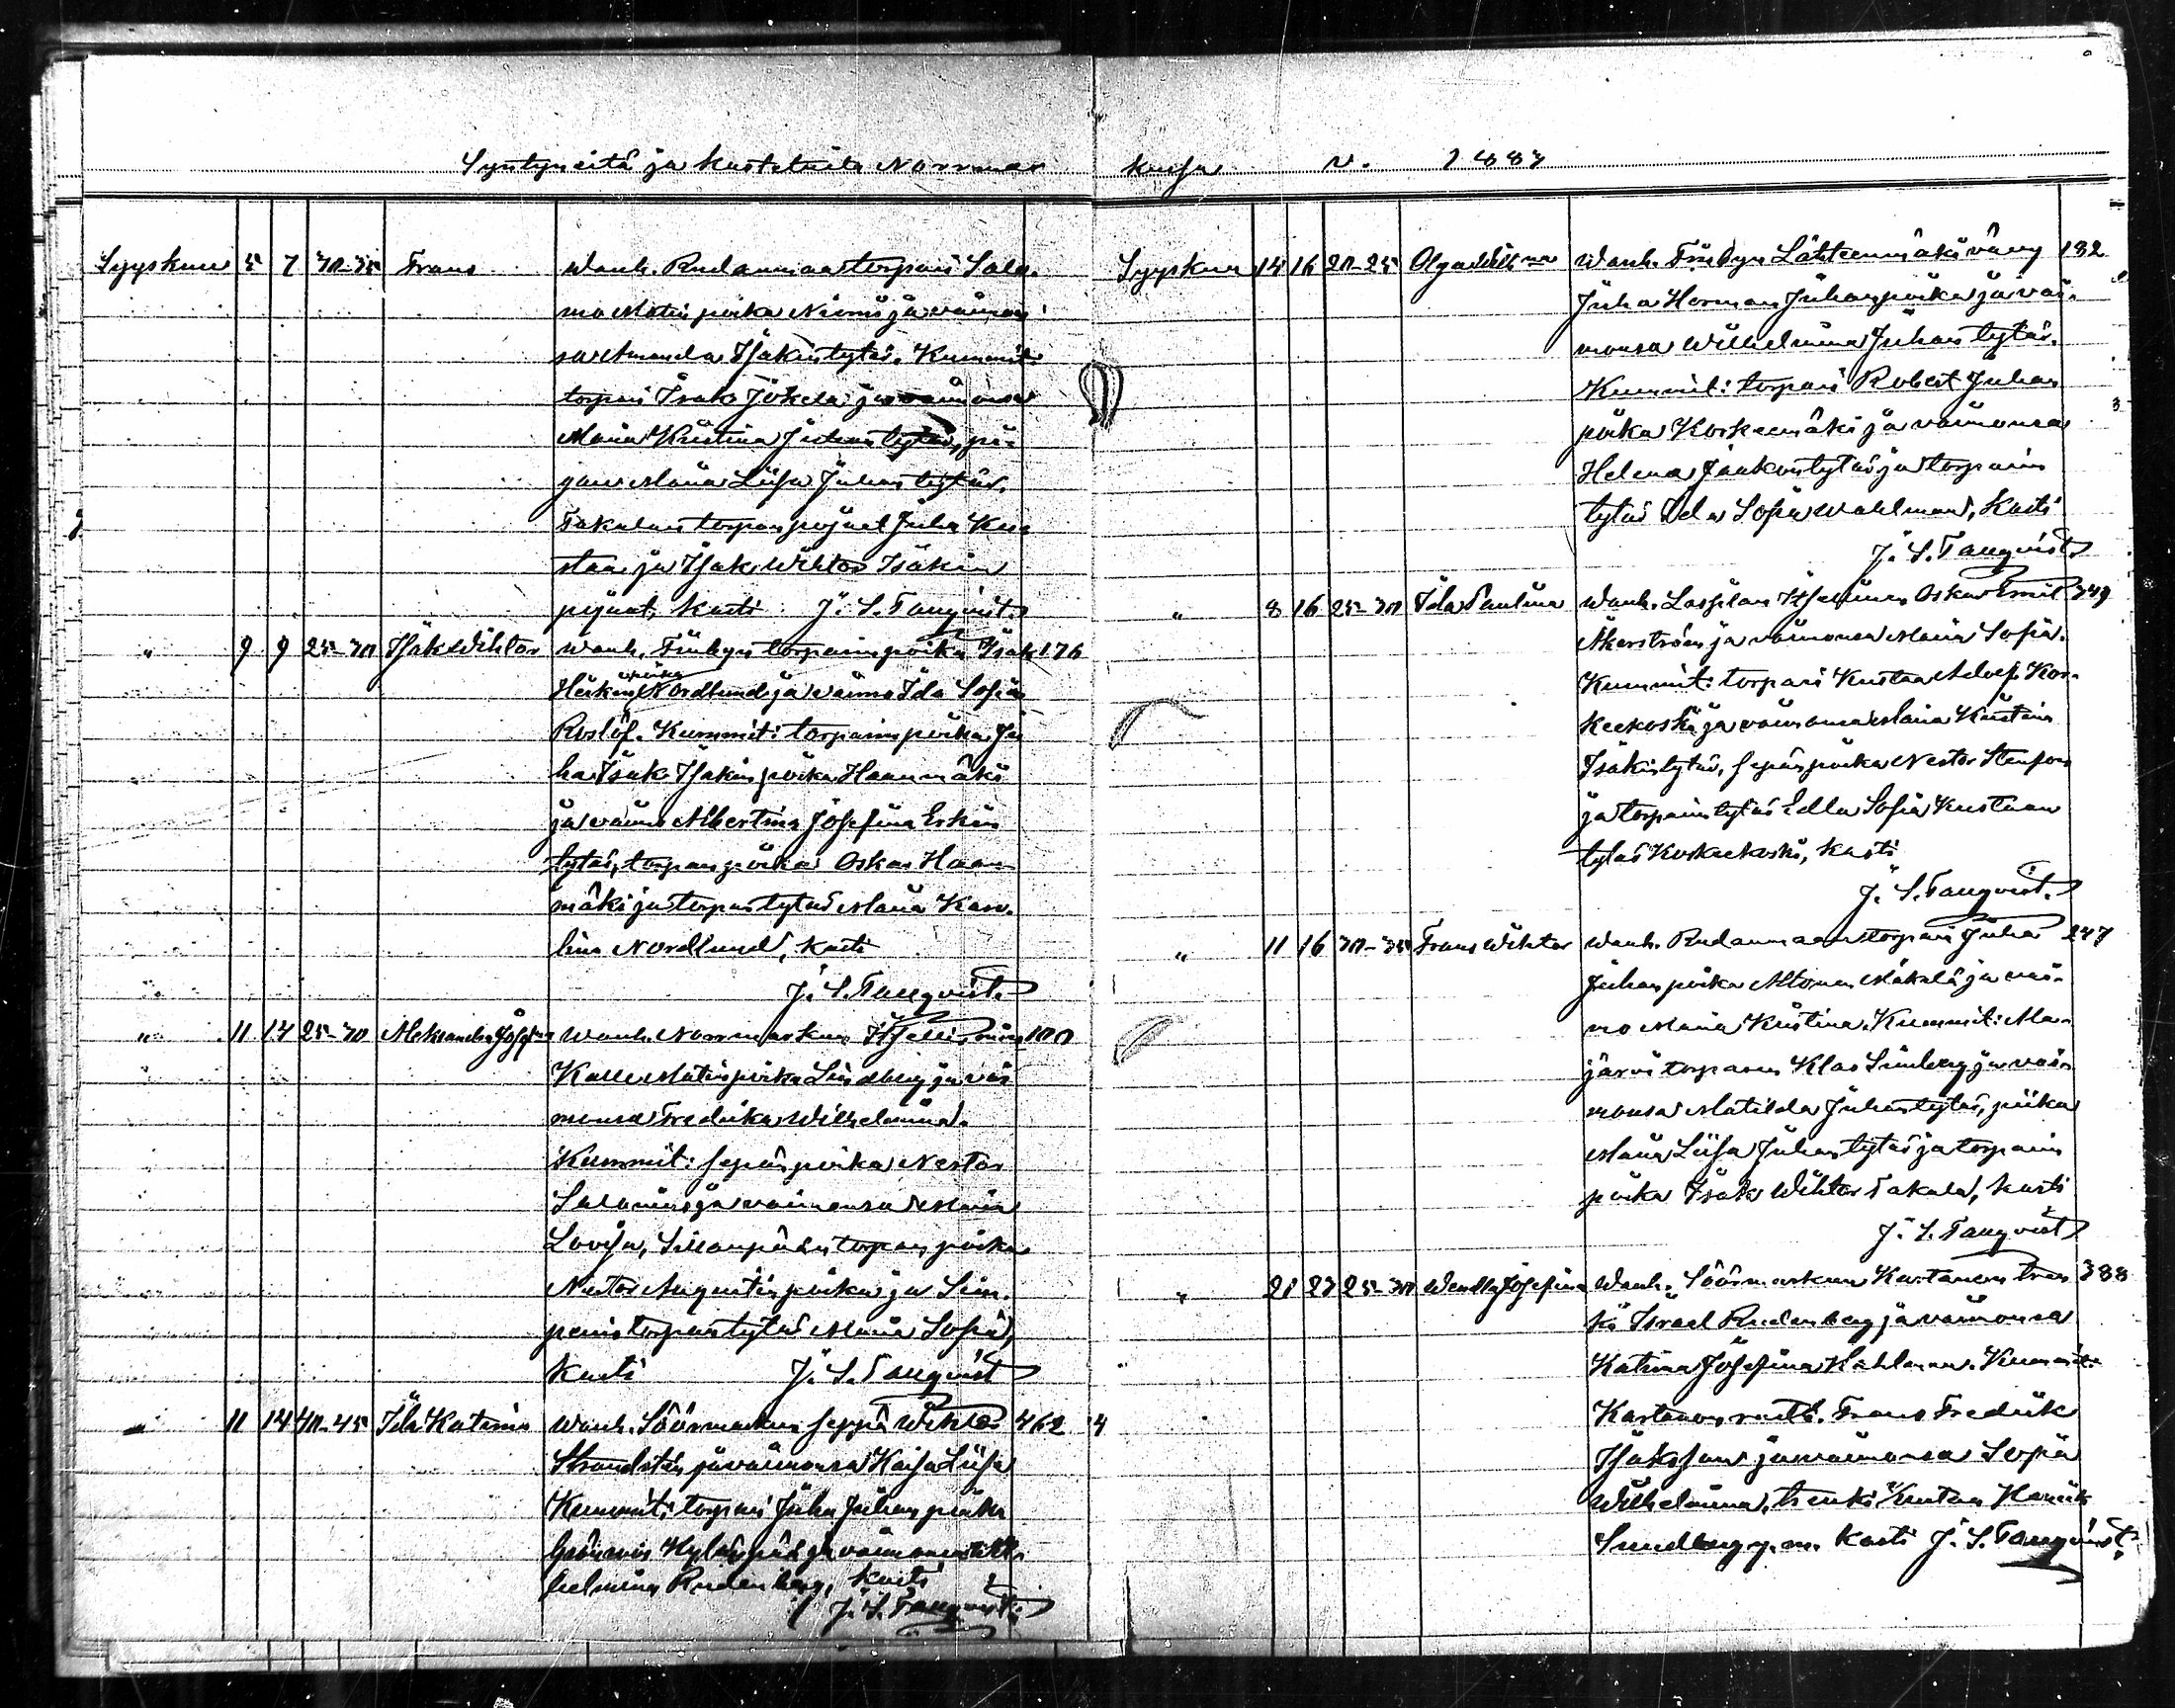 Syntyneitä ja kastetuita Norrmar
kussa v. 1887
Syyskuu 5 7 30-35 Frans Wanh. Rudanmaan torpari Salo-
mo Matinpoika Niemi ja vaimon-
sa Amanda Isakintytär. Kummit:
torpari Isak Jokela ja vaimonsa
Maria Kristina Juhantytär, pi-
jan Maria Liisa Juhantytär,
Takalan torpan pojat Juha Kus-
taa ja Isak Wihtor Isakin
pojat, kasti J. S. Tanqvist.
" 9 9 25-30 Isak Wihtor Wanh. Finbyn torparinpoika Isak 176
Heikinpoika Nordlund ja vaimo Ida Sofia
Roslöf. Kummit: torparinpoika Ju
ha Isak Isakinpoika Haanmäki
ja vaimo Albertina Josefina Erkin
tytär, torpanpoika Oskar Haan-
mäki ja torpantytär Maria Karo-
lina Nordlund, kasti
J. S. Tanqvist.
" 11 14 25-30 Aleksandra Josefina Wanh. Norrmarkun Itsellismies 100
Kalle Matinpoika Lindberg ja vai
monsa Fredrika Wilhelmina.
Kummit: sepänpoika Nestor
Salonius ja vaimonsa Maria
Lovisa, Sillanpään torpanpoika
Nestor Augustinpoika ja Sim-
penin torpantytär Maria Sofia,
kasti J. S. Tanqvist
" 11 14 40-45 Ida Katarina Wanh. Söörmarkun seppä Wihtor 462
Strandsten ja vaimonsa Kaisa Liisa
Kummit: torpari Juha Juhanpoika
Kylänpää ja vaimonsa Wil-
helmina Rudenberg, kasti
J. S. Tanqvist.
Syyskuu 14 16 20-25 Olga Wilh:na Wanh. Finbyn Lähteenmäki vävy 182
Juha Herman Juhanpoika ja vai-
monsa Wilhelmina Juhantytär.
Kummit: torpari Robert Juhan
poika Koskenmäki ja vaimonsa
Helena Jaakontytär ja torparin
tytär Ida Sofia Wahlman, kasti
J. S. Tanqvist
" 8 16 25-30 Ida Paulina Wanh. Lassilan Itsellinen Oskar Emil 349
Åkerström ja vaimonsa Maria Sofia.
Kummit: torpari Kustaa Adolf Kos-
keekoski ja vaimonsa Maria Kristina
Isakintytär, sepänpoika Nestor Stenfors
ja torparintytär Edla Sofia Kustaan
tytär Koskeekoski, kasti
J. S. Tanqvist.
" 11 16 30-35 Frans Wihtor Wanh. Rudanmaan torpari Juha 247
Juhanpoika Ahonen Mäkelä ja vai-
mo Maria Kristina. Kummit: Ma-
järvi torparin Klas Limberg ja vai-
monsa Matilda Juhantytär, piika
Maria Liisa Juhantytär ja torparin
poika Isak Wihtor Takala, kasti
J. S. Tanqvist
" 21 23 25-30 Wendla Josefina Wanh. Söörmarkun Kartanon tren 388
ki Israel Rudenberg ja vaimonsa
Katrina Josefina Kahlman. Kummit:
Kartanon Frans Fredrik
Isaksson ja vaimonsa Sofia
Wilhelmina, trenki Kustaa Henrik
Sundberg y. m. kasti J. S. Tanqvist.